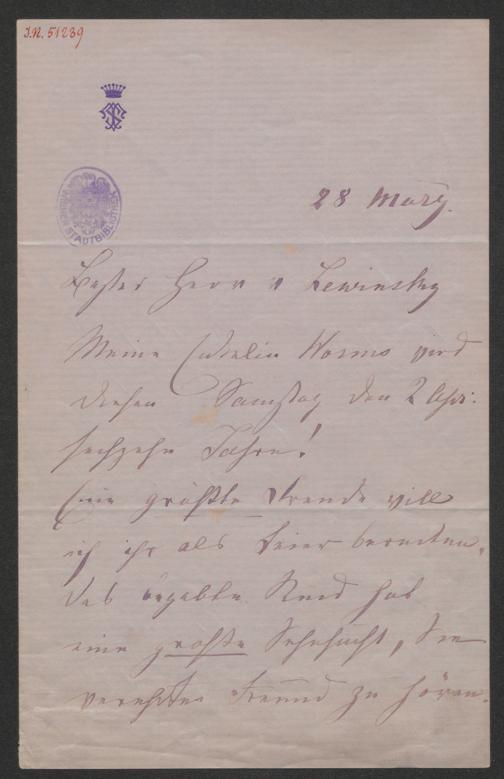 I.N. 51239
WIENER STADTBIBLIOTHEK
28 März.
Bester Herr v Lewinsky
Meine Worms wird
diesen Samstag den 2 Apr:
sechzehn Jahre!
Eine größte Freude will
ich ihr als Feier bereiten.
Das begabte Kind hat
eine große Sehnsucht, Sie
verehrter Freund zu hören.